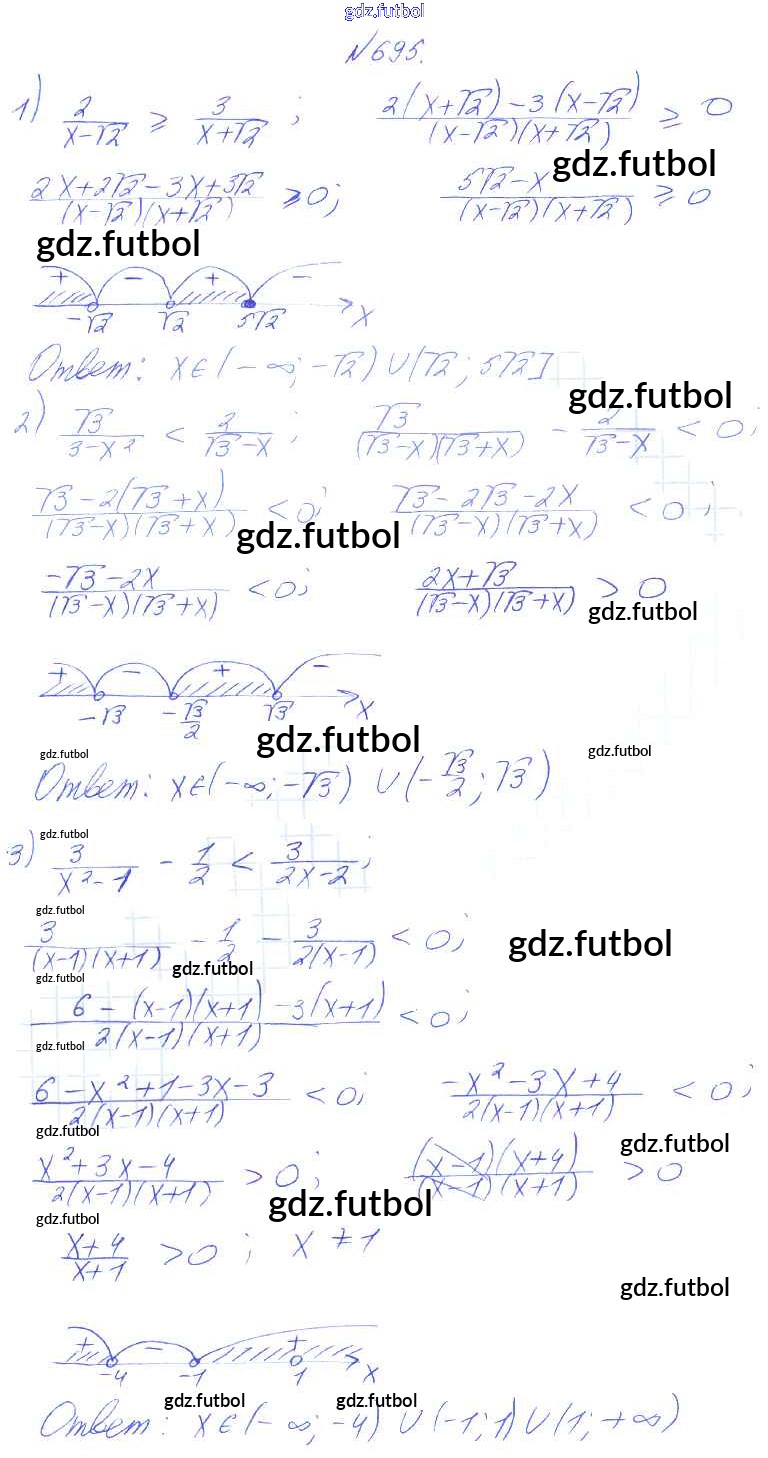 gdz.futbol
№695.
1) 2/(x-√2) ≥ 3/(x+√2) ; (2(x+√2)-3(x-√2))/((x-√2)(x+√2)) ≥ 0
gdz.futbol
(2x+2√2-3x+3√2)/((x-√2)(x+√2)) ≥0; (5√2-x)/((x-√2)(x+√2)) ≥0
gdz.futbol
+ - + -
-√2 √2 5√2 x
Ответ: x∈(-∞;-√2)∪(√2;5√2]
gdz.futbol
2) √3/(3-x²) < 2/(√3-x) ; √3/((√3-x)(√3+x)) - 2/(√3-x) < 0;
(√3-2(√3+x))/((√3-x)(√3+x)) <0; (√3-2√3-2x)/((√3-x)(√3+x)) <0;
gdz.futbol
(-√3-2x)/((√3-x)(√3+x)) <0; (2x+√3)/((√3-x)(√3+x)) > 0
gdz.futbol
+ - + -
-√3 -√3/2 √3 x
gdz.futbol
gdz.futbol gdz.futbol
Ответ: x∈(-∞;-√3) ∪(-√3/2;√3)
gdz.futbol
3) 3/(x²-1) - 1/2 < 3/(2x-2);
gdz.futbol
3/((x-1)(x+1)) - 1/2 - 3/(2(x-1)) < 0;
gdz.futbol
gdz.futbol
gdz.futbol
(6-(x-1)(x+1)-3(x+1))/(2(x-1)(x+1)) <0;
gdz.futbol
(6-x²+1-3x-3)/(2(x-1)(x+1)) <0; (-x²-3x+4)/(2(x-1)(x+1)) <0;
gdz.futbol
gdz.futbol
(x²+3x-4)/(2(x-1)(x+1)) >0; ((x-1)(x+4))/((x-1)(x+1)) >0
gdz.futbol
gdz.futbol
(x+4)/(x+1) >0 ; x≠1
gdz.futbol
+ - +
-4 -1 1 x
gdz.futbol gdz.futbol
Ответ: x∈(-∞;-4)∪(-1;1)∪(1;+∞)